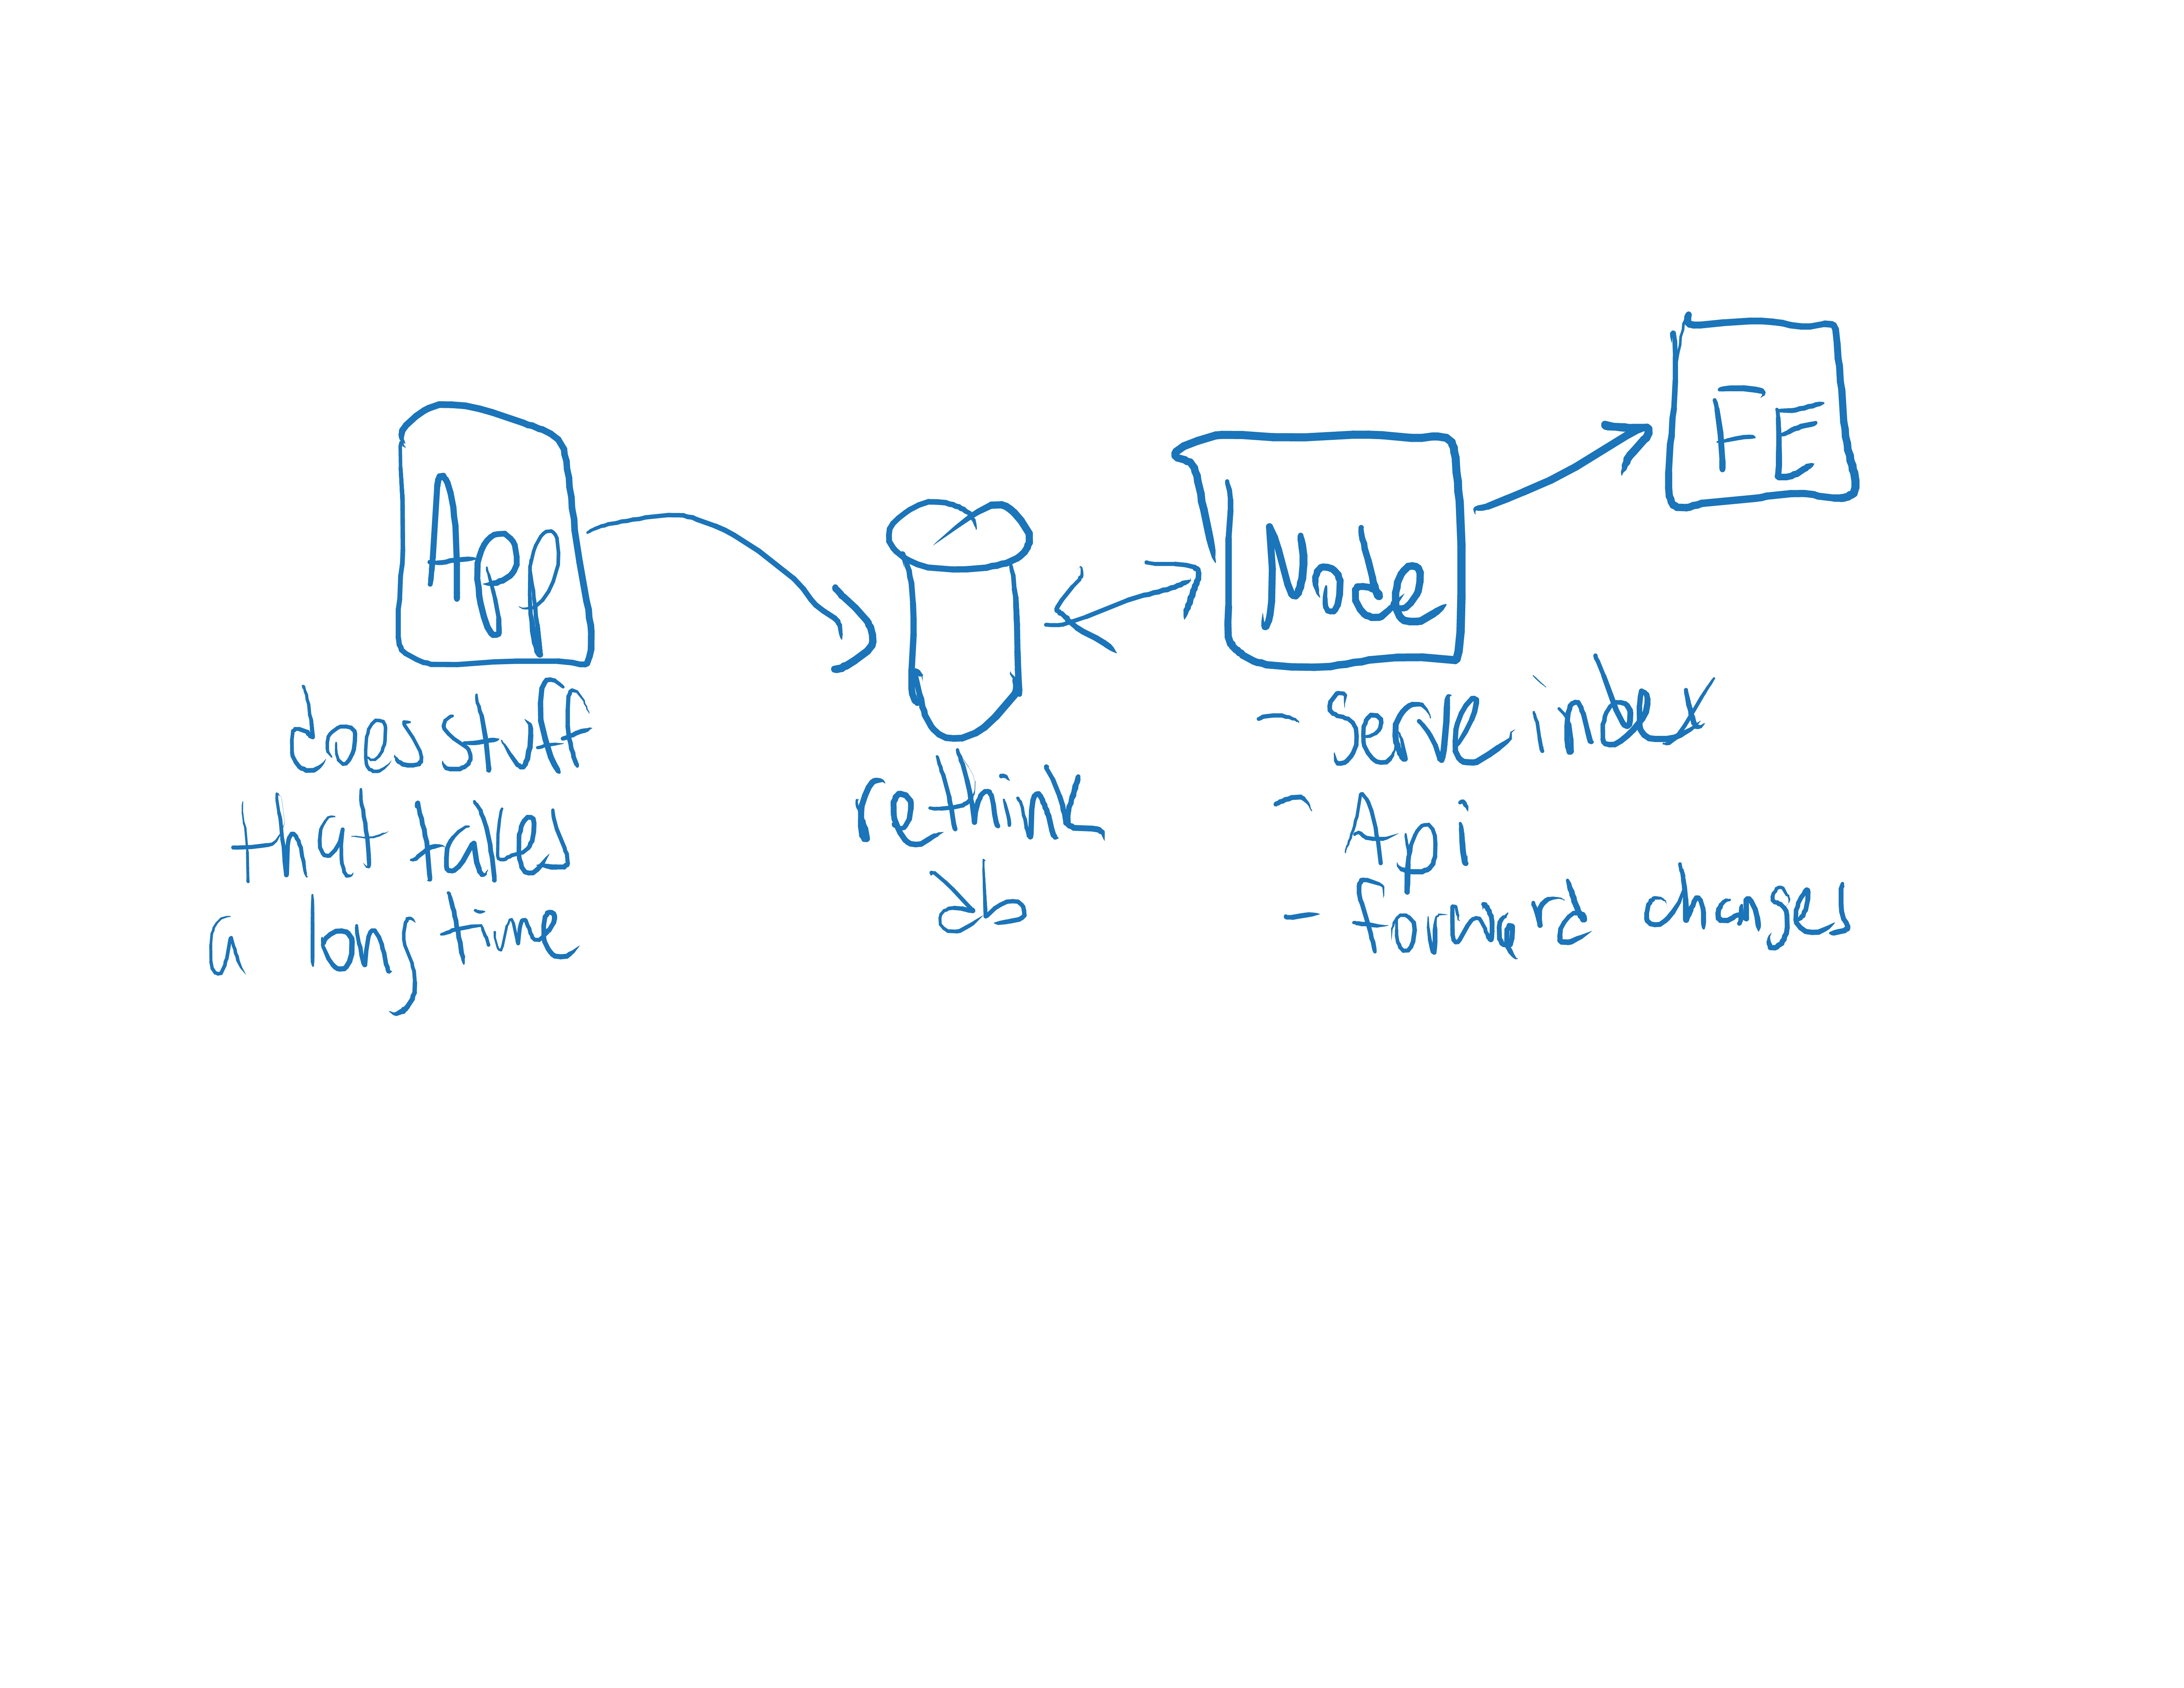 App
does stuff
that takes
a long time
rethink
db
Node
- Serve index
- Api
- forward changes
FE